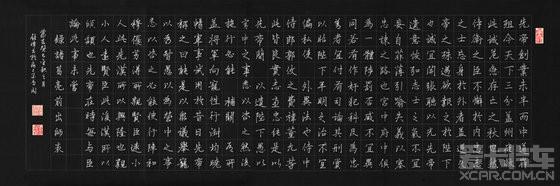 先帝創業未半而中道崩
殂今天下三分益州疲弊
此誠危急存亡之秋也然
侍衛之臣不懈於內忠志
之士忘身於外者蓋追先
帝之殊遇欲報之於陛下
也誠宜開張聖聽以光先帝
遺德恢弘志士之氣不宜
妄自菲薄引喻失義以塞
忠諫之路也宮中府中俱
為一體陟罰臧否不宜異
同若有作奸犯科及為忠
善者宜付有司論其刑賞
以昭陛下平明之理不宜
偏私使內外異法也侍中
侍郎郭攸之費禕董允等
此皆良實志慮忠純是以
先帝簡拔以遺陛下愚以
為宮中之事悉以咨之然後
施行必能裨補闕漏有所
廣益將軍向寵性行淑均曉
暢軍事試用於昔日先帝
稱之曰能是以眾議舉寵
為督愚以為營中之事
悉以咨之必能使行陣和
睦優劣得所親賢臣遠
小人此先漢所以興隆也親
小人遠賢臣此後漢所以傾
頹也先帝在時每與臣
論此事未嘗
錄諸葛亮前出師表
爱卡汽车